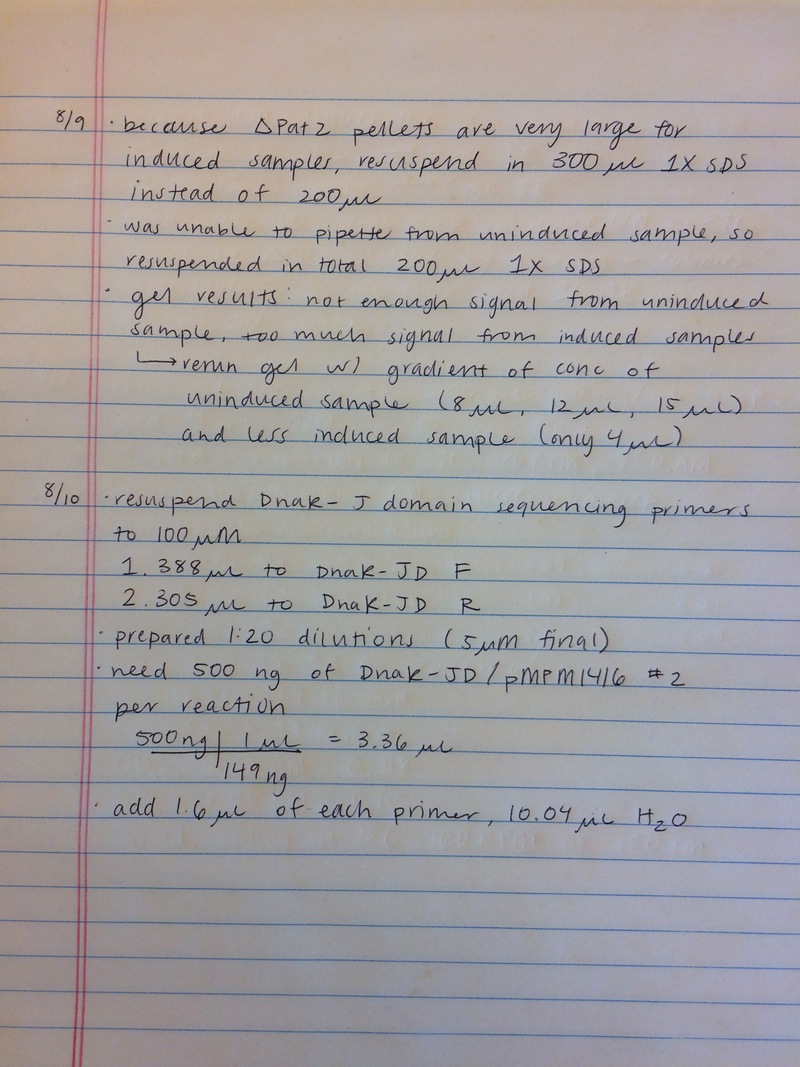 8/9 · because ΔPat2 pellets are very large for
induced samples, resuspend in 300 µL 1X SDS
instead of 200µL
· was unable to pipette from uninduced sample, so
resuspended in total 200µL 1X SDS
· gel results: not enough signal from uninduced
sample, too much signal from induced samples
↳ rerun gel w/ gradient of conc of
uninduced sample (8µL, 12µL, 15µL)
and less induced sample (only 4µL)
8/10 · resuspend DnaK-J domain sequencing primers
to 100µM
1. 388µL to DnaK-JD F
2. 305µL to DnaK-JD R
· prepared 1:20 dilutions (5µM final)
· need 500 ng of DnaK-JD/pMPM1416 #2
per reaction
500ng | 1 µL = 3.36 µL
149 ng
· add 1.6µL of each primer, 10.04µL H₂O